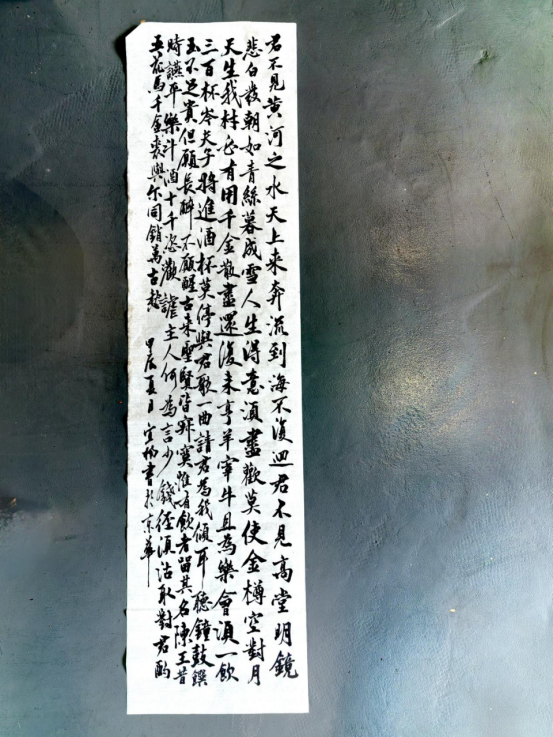 君不見黄河之水天上来奔流到海不復迴君不見高堂明鏡
悲白髮朝如青絲暮成雪人生得意須盡歡莫使金樽空對月
天生我材必有用千金散盡還復来亨羊宰牛且為樂會須一飲
三百杯岑夫子將進酒杯莫停與君歌一曲請君為我傾耳聽鐘鼓饌
玉不足貴但願長醉不願醒古来聖賢皆寂寞惟有飲者留其名陳王昔
時讌平樂斗酒十千恣歡謔主人何為言少錢徑須沽取對君酌
五花馬千金裘與尔同銷萬古愁 甲辰夏月書於京華